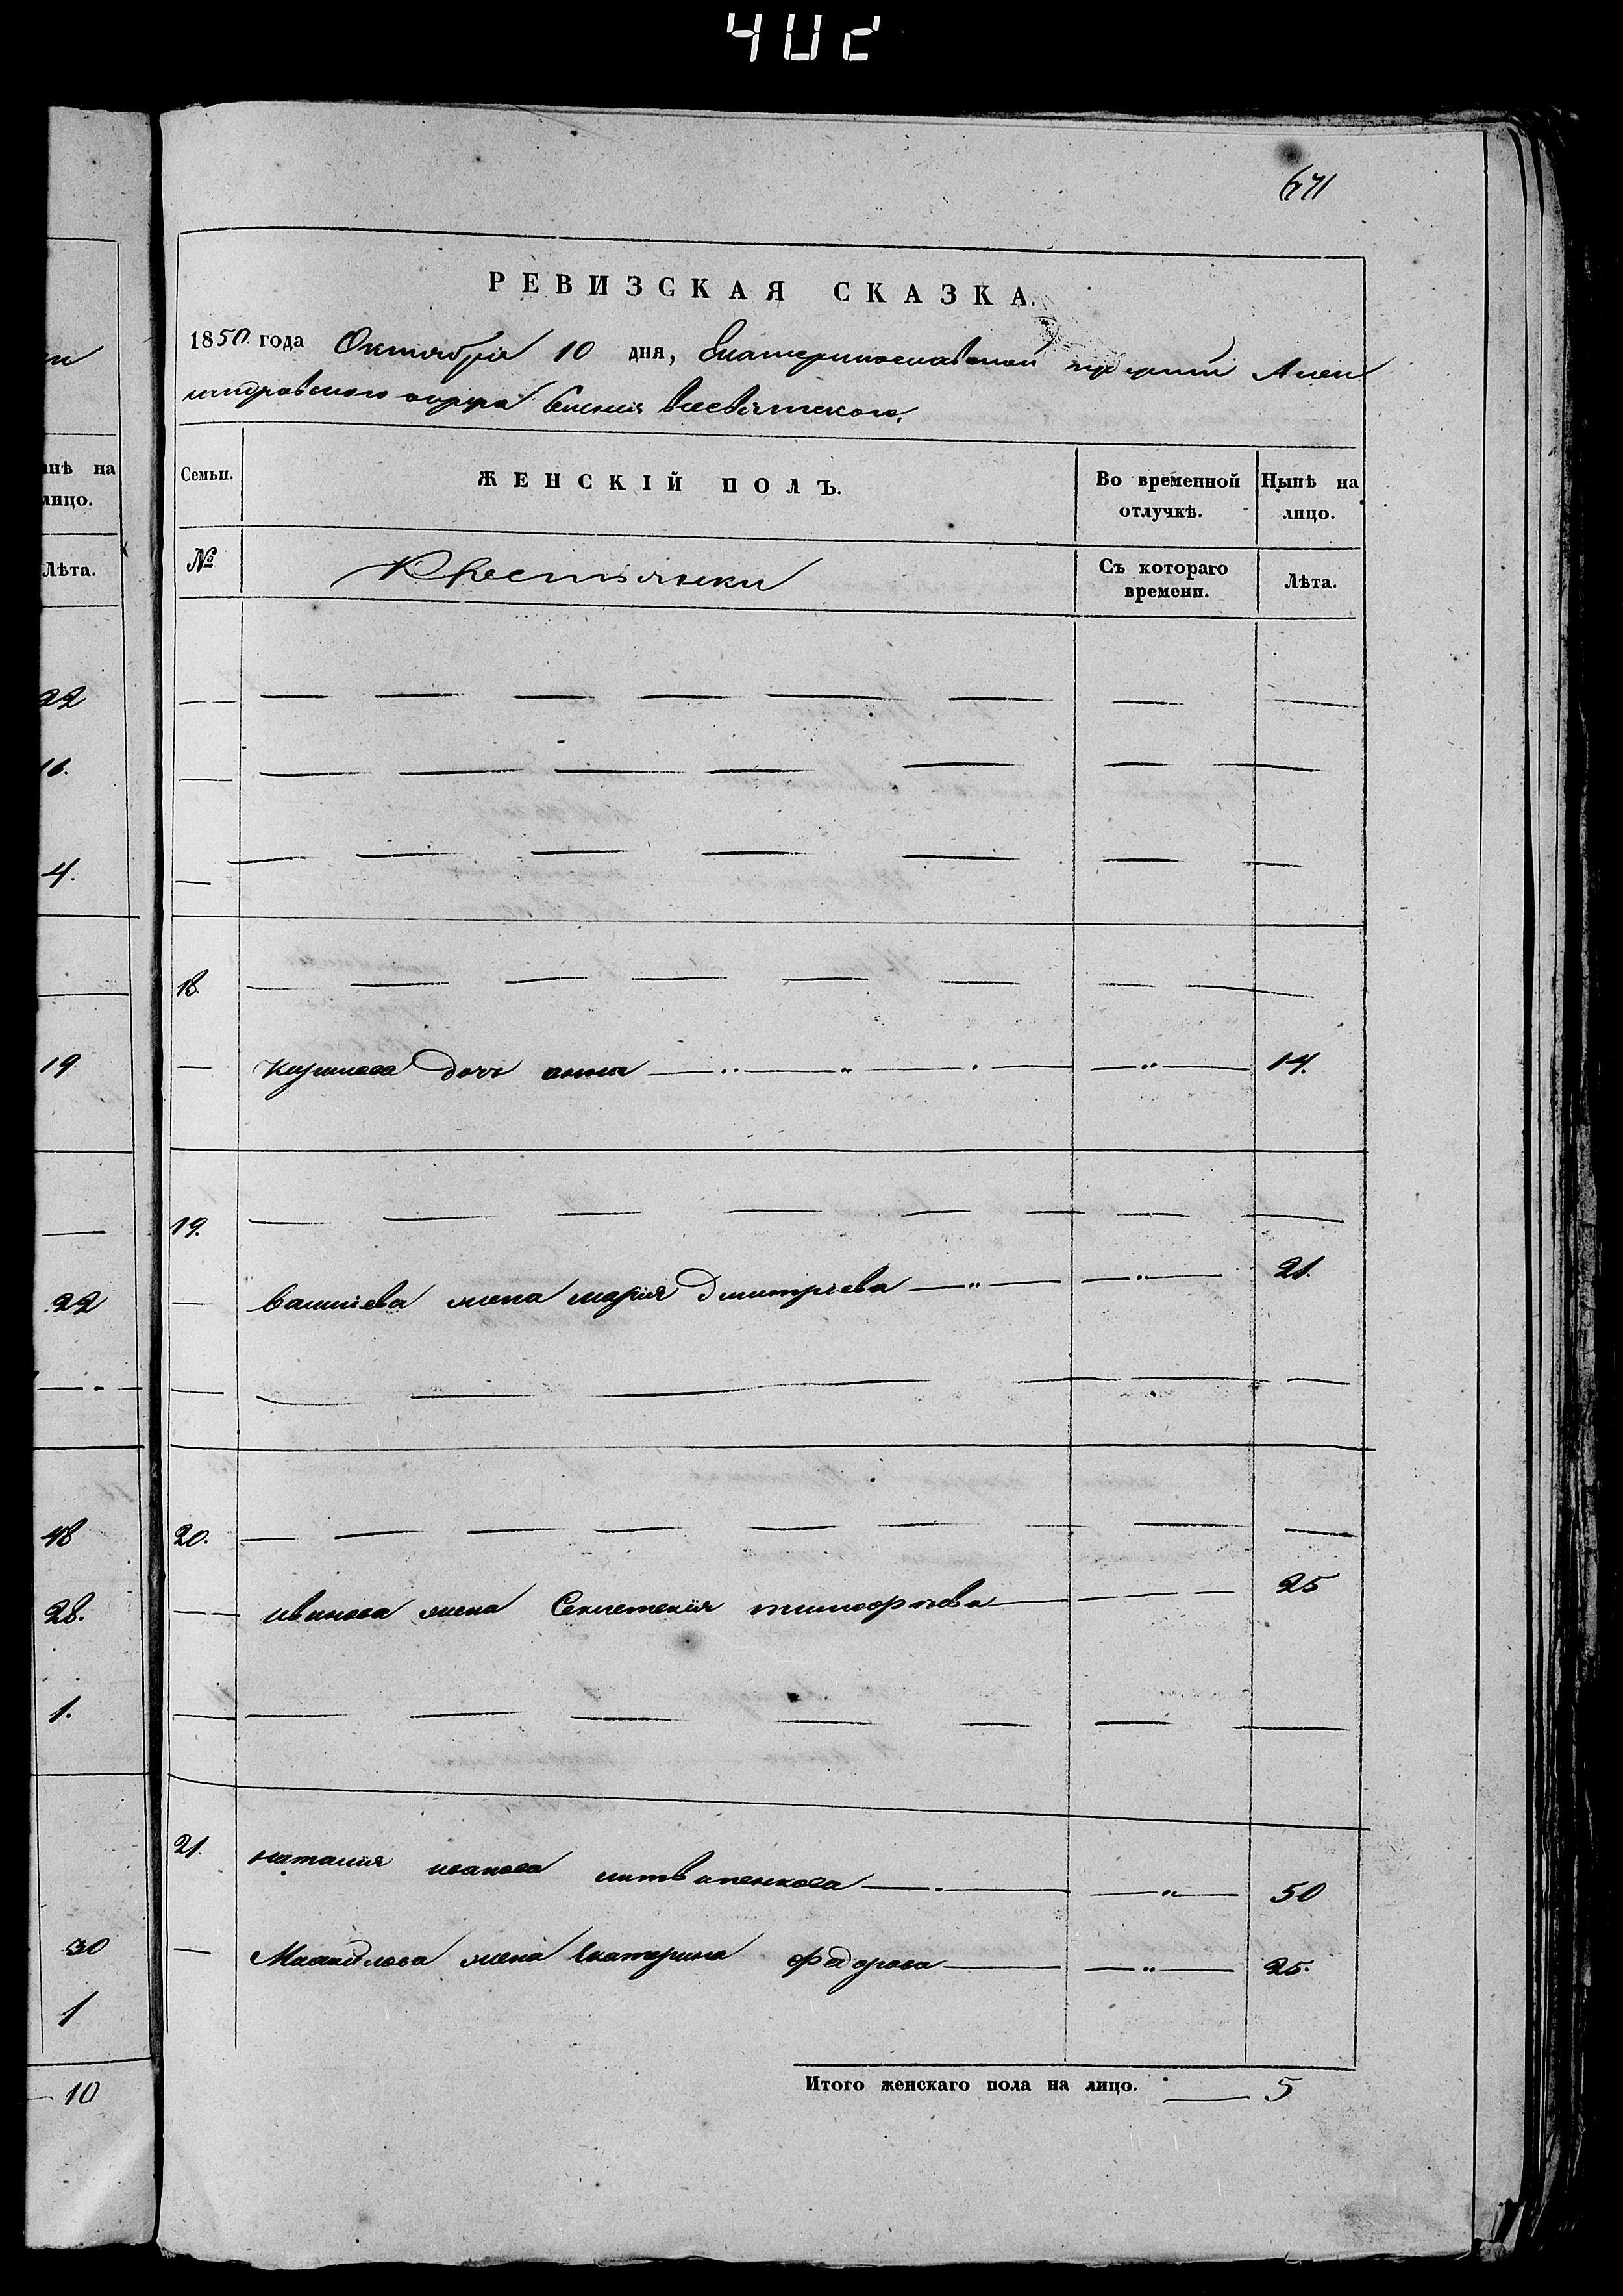 402
671
РЕВИЗСКАЯ СКАЗКА.
1850 года Октября 10 дня, Екатеринославской губернiи Алек
сандровского округа Селенiя Всесвятского,
Семьи.
ЖЕНСКIЙ ПОЛЪ.
Во временной отлучкѣ.
Нынѣ на лицо.
№
Крестьянки
Съ котораго времени.
Лѣта.
18.
дочь анна 14.
19.
василiева жена марiя Дмитрiева 21.
20.
иванова жена Секлетенiя тимофѣева 25
21.
наталiя иванова литвиненкова 50
Михайлова жена Екатерина федорова 25.
Итого женскаго пола на лицо. 5
нѣ на
лицо.
Лѣта.
22
16.
4.
19
22
48
28.
1.
30
1
10